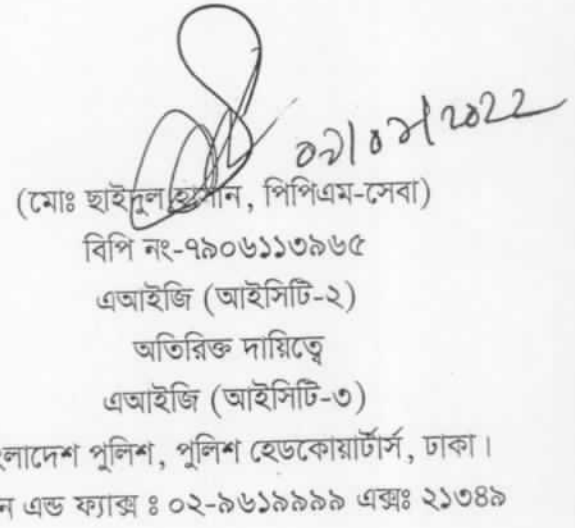 ০১/০৯/২০২২
(মোঃ ছাইদুল হাসান, পিপিএম-সেবা)
বিপি নং-৭৯০৬১১৩৯৬৫
এআইজি (আইসিটি-২)
অতিরিক্ত দায়িত্বে
এআইজি (আইসিটি-৩)
পুলিশ, পুলিশ হেডকোয়ার্টার্স, ঢাকা।
এন্ড ফ্যাক্স ঃ ০২-৯৬১৯৯৯৯ এক্সঃ ২১৩৪৯